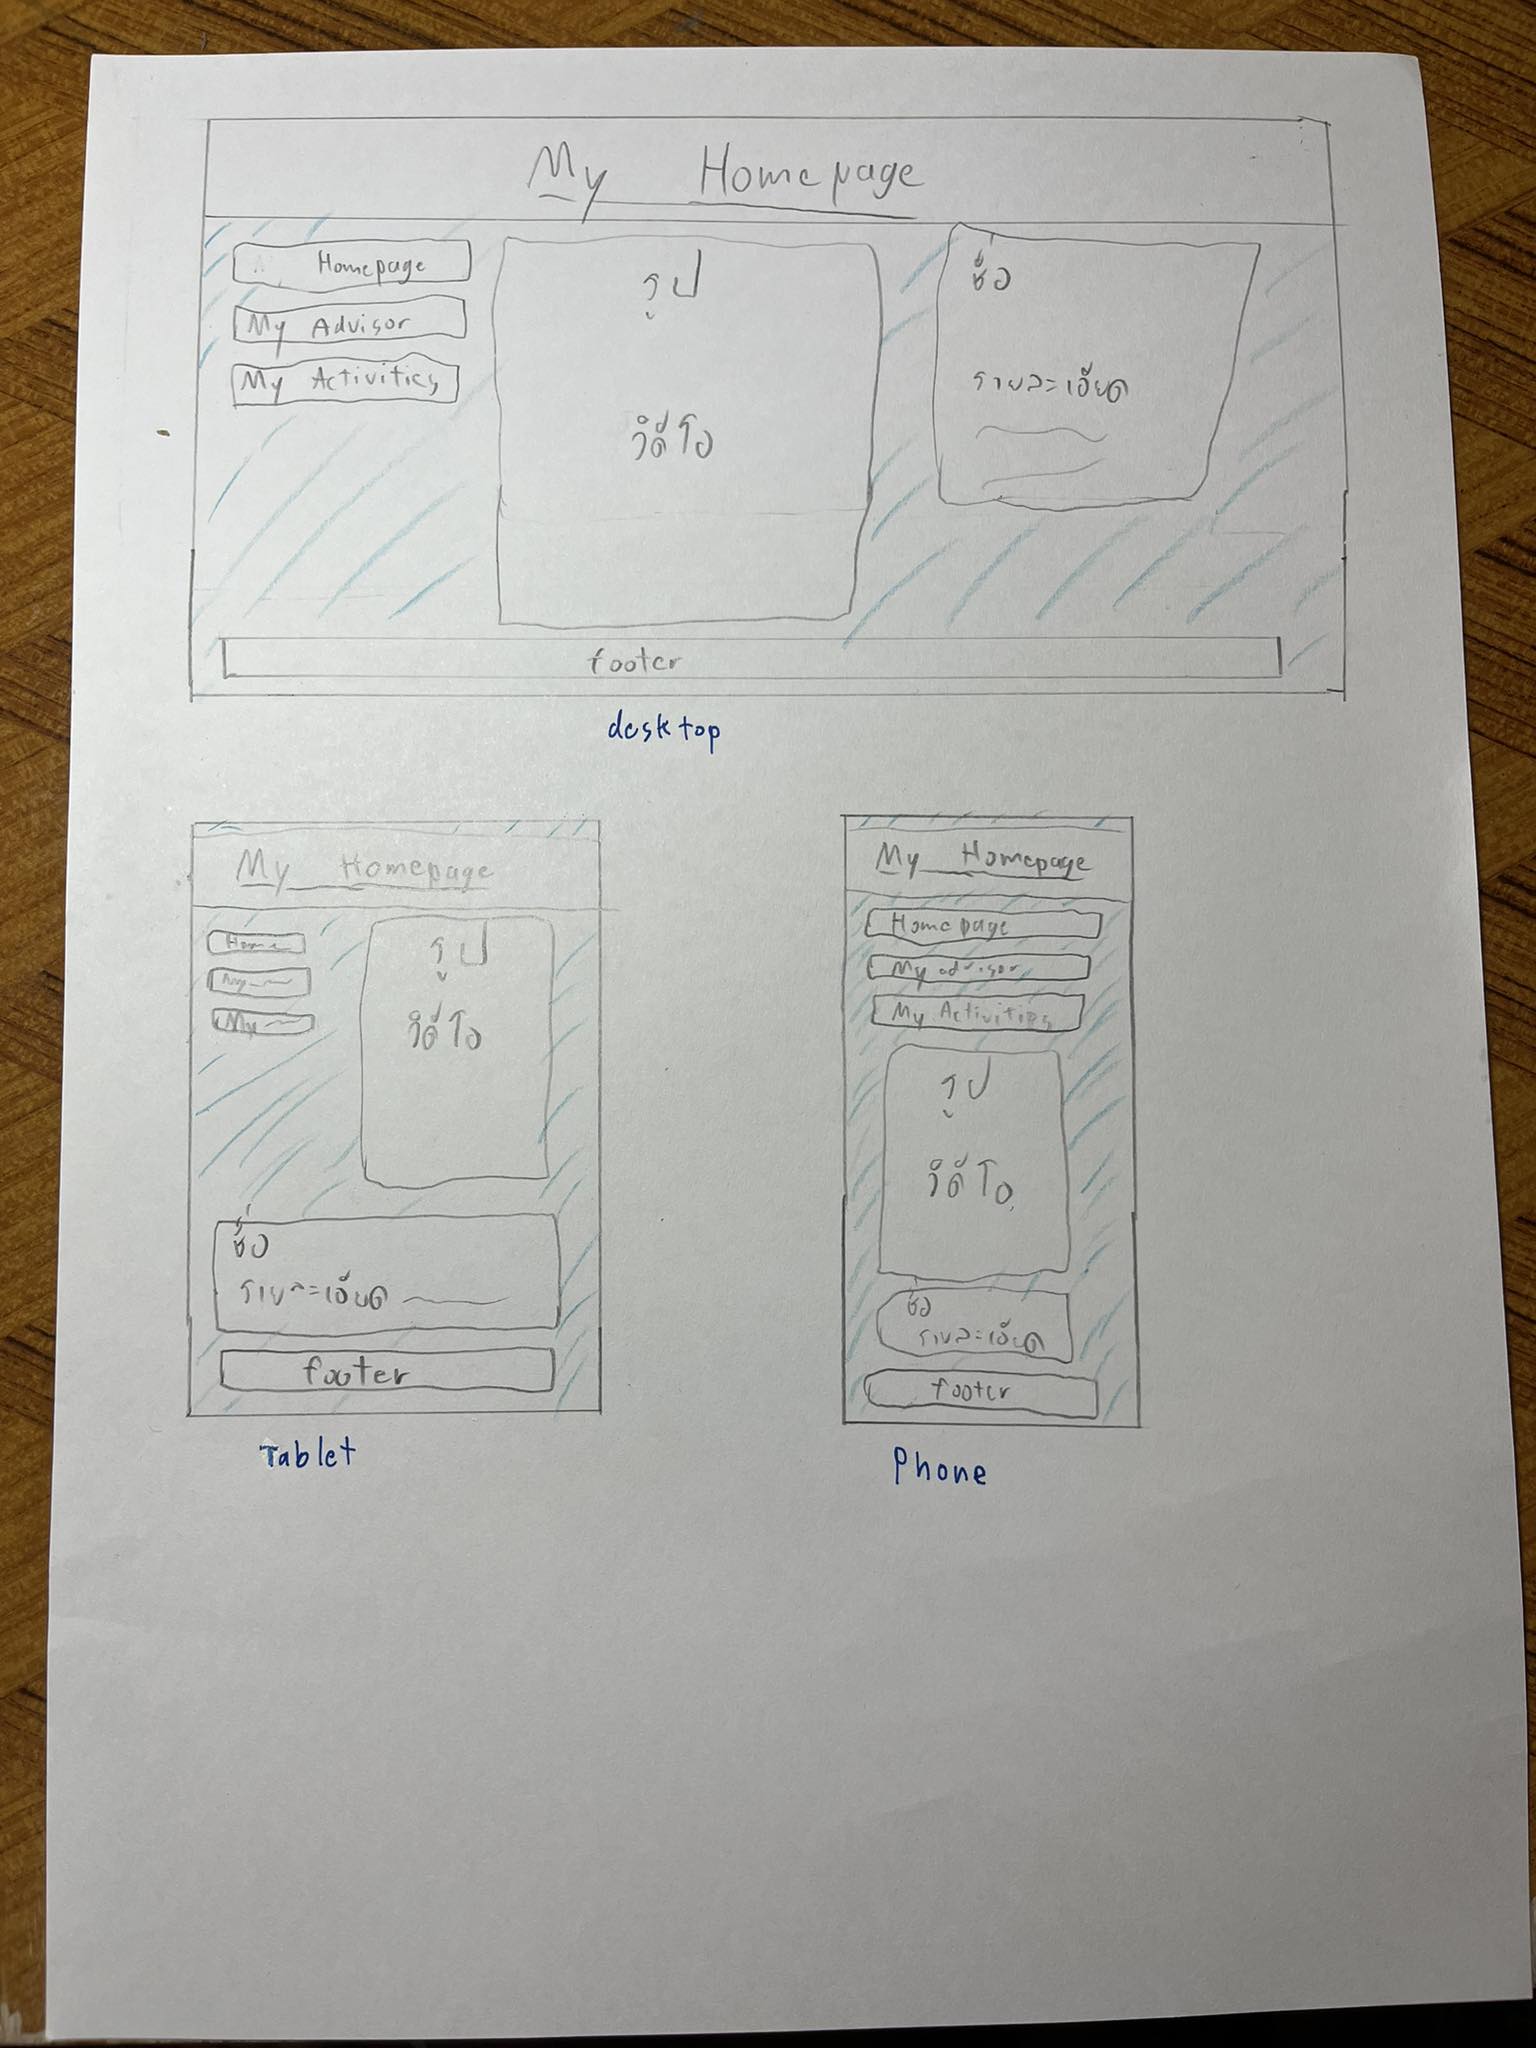 My Homepage
Homepage
My Advisor
My Activities
รูป
วิดีโอ
ชื่อ
รายละเอียด
footer
desktop
My Homepage
Home
My
รูป
วิดีโอ
ชื่อ
รายละเอียด
footer
Tablet
My Homepage
Homepage
My advisor
My Activities
รูป
วิดีโอ
ชื่อ
รายละเอียด
footer
Phone